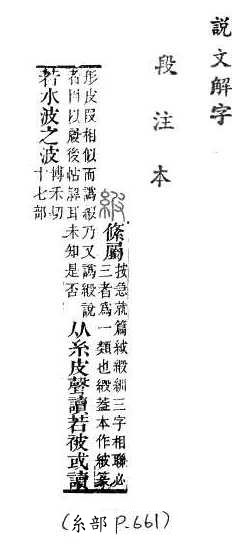 說文解字
段注本
紴 絛屬
按急就篇絨緞紃三字相聯必
三者爲一類也緞葢本作紴篆
形皮叚相似而譌緞乃又譌緞說
者因以履後帖釋耳未知是否
从糸皮聲讀若被或讀
若水波之波
博禾切
十七部
(糸部 P.661)